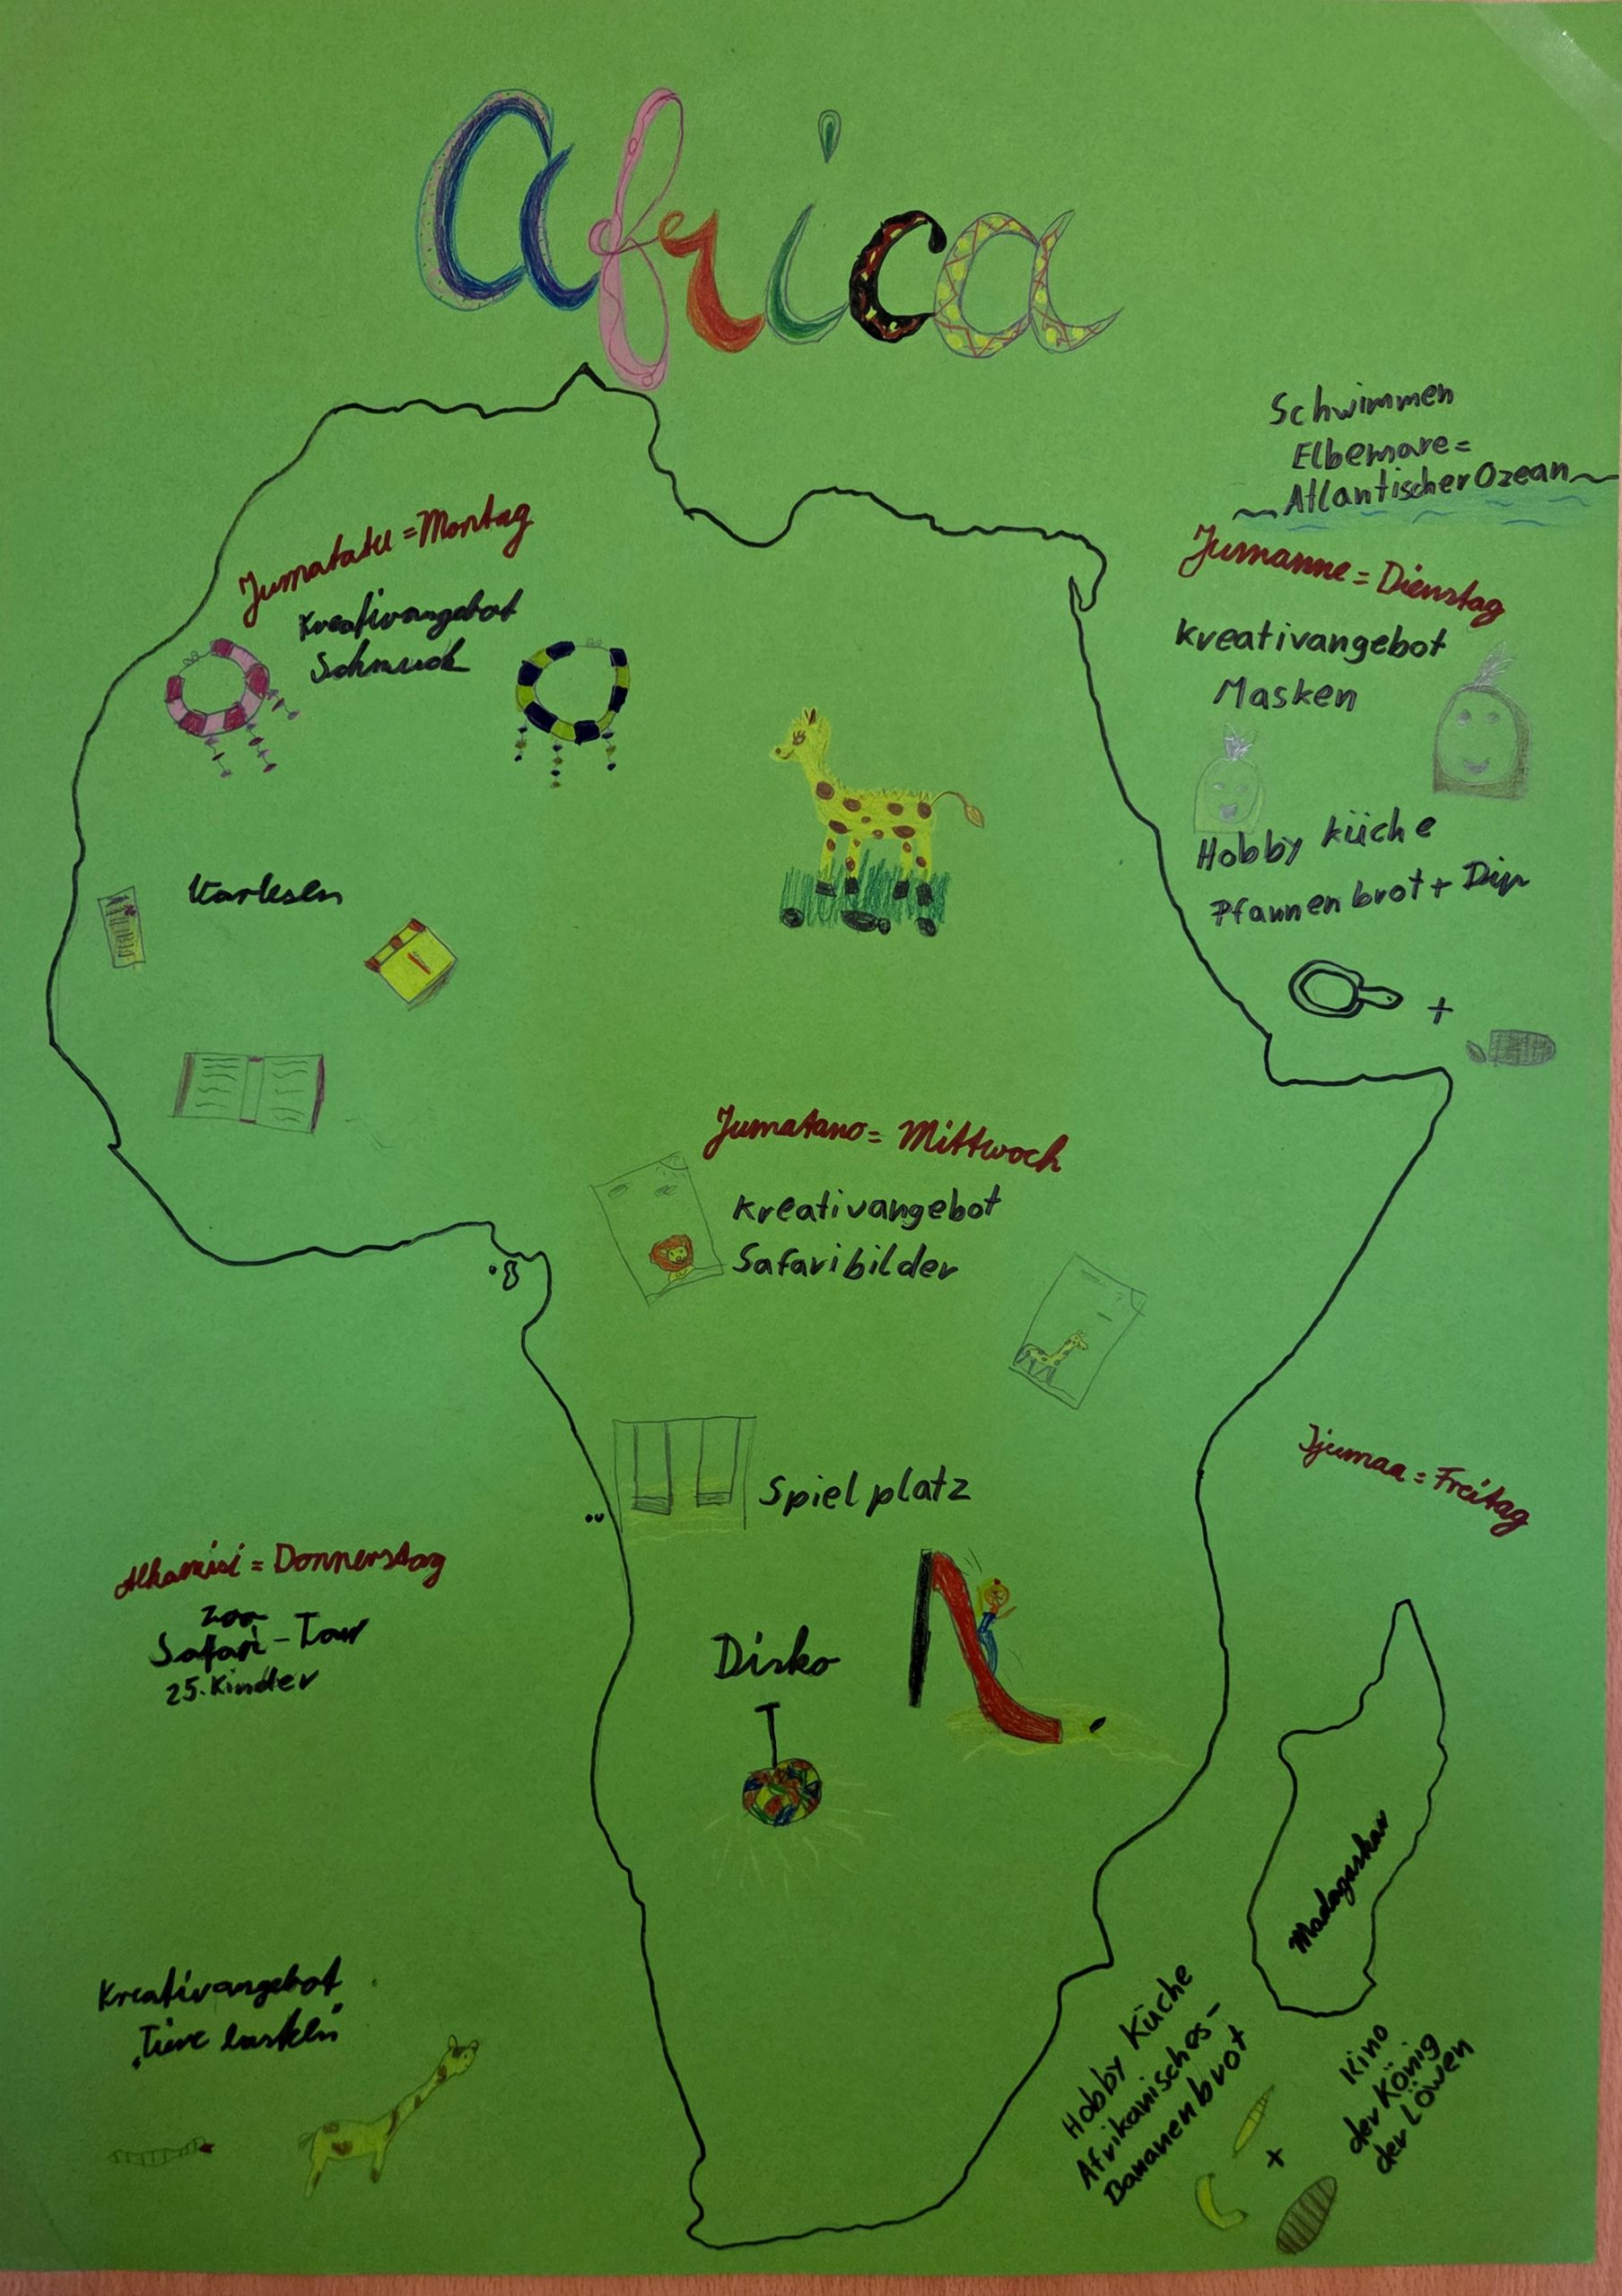 Africa
Schwimmen
Elbemare=
~Atlantischer Ozean~
Jumatatu = Montag
Kreativangebot
Schmuck
Vorlesen
Jumanne = Dienstag
Kreativangebot
Masken
Hobby Küche
Pfannenbrot + Dip
+
Jumatano = Mittwoch
Kreativangebot
Safaribilder
Spielplatz
Disko
Alhamisi = Donnerstag
Zoo
Safari-Tour
25. Kinder
Kreativangebot
"Tiere basteln"
Ijumaa = Freitag
Madagaskar
Hobby Küche
Afrikanisches-
Bananenbrot
+
Kino
der König
der Löwen